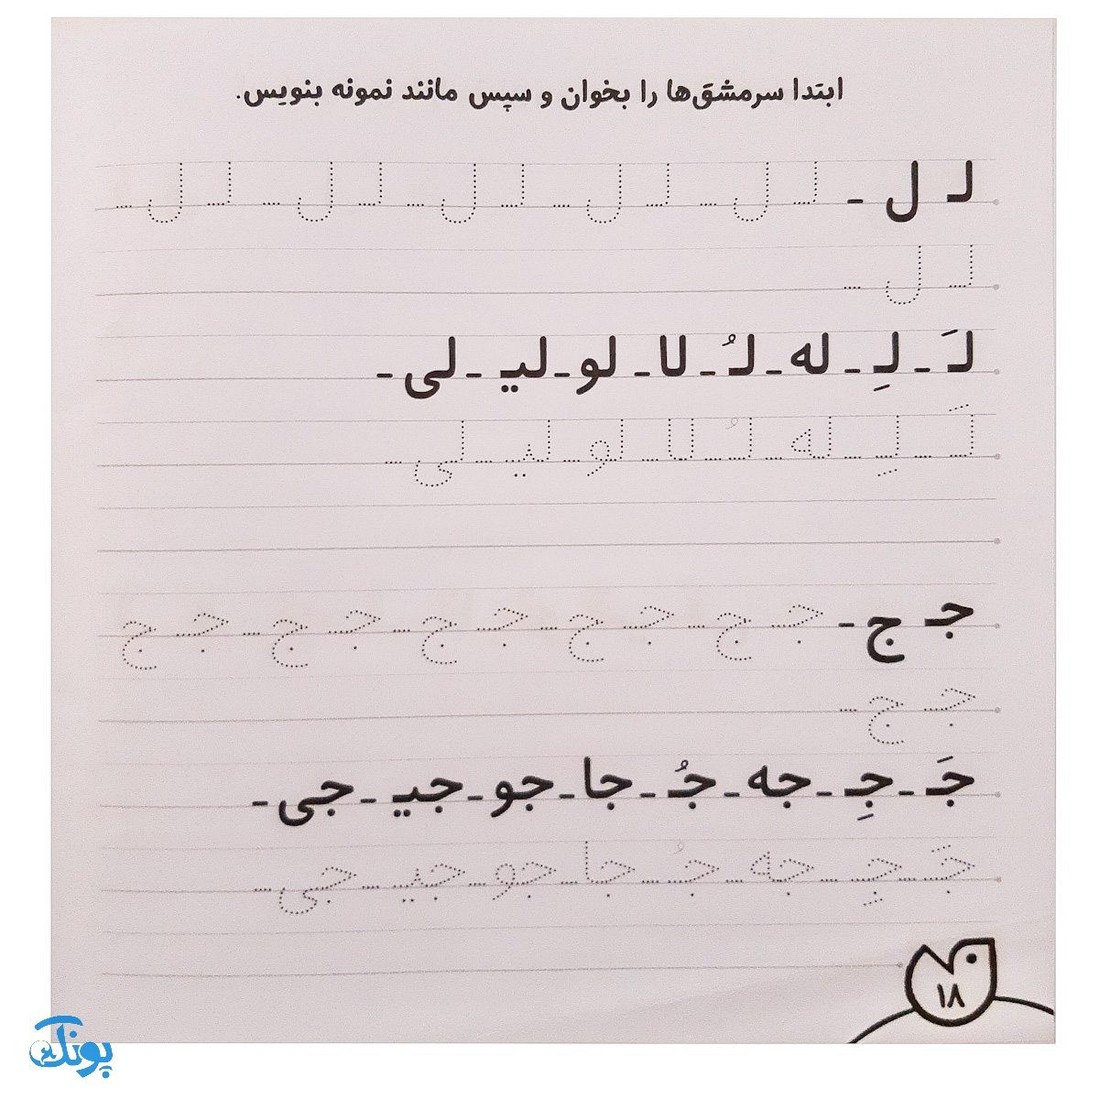 ابتدا سرمشق‌ها را بخوان و سپس مانند نمونه بنویس.
لـ ل - لـ ل - لـ ل - لـ ل - لـ ل - لـ ل -
لـ ل -
لـَ - لـِ - له - لـُ - لا - لو - لیـ - لی -
لـَ - لـِ - له - لـُ - لا - لو - لیـ - لی -
جـ ج - جـ ج - جـ ج - جـ ج - جـ ج - جـ ج
جـ ج -
جـَ - جـِ - جه - جـُ - جا - جو - جیـ - جی -
جـَ - جـِ - جه - جـُ - جا - جو - جیـ - جی -
۱۸
پونک